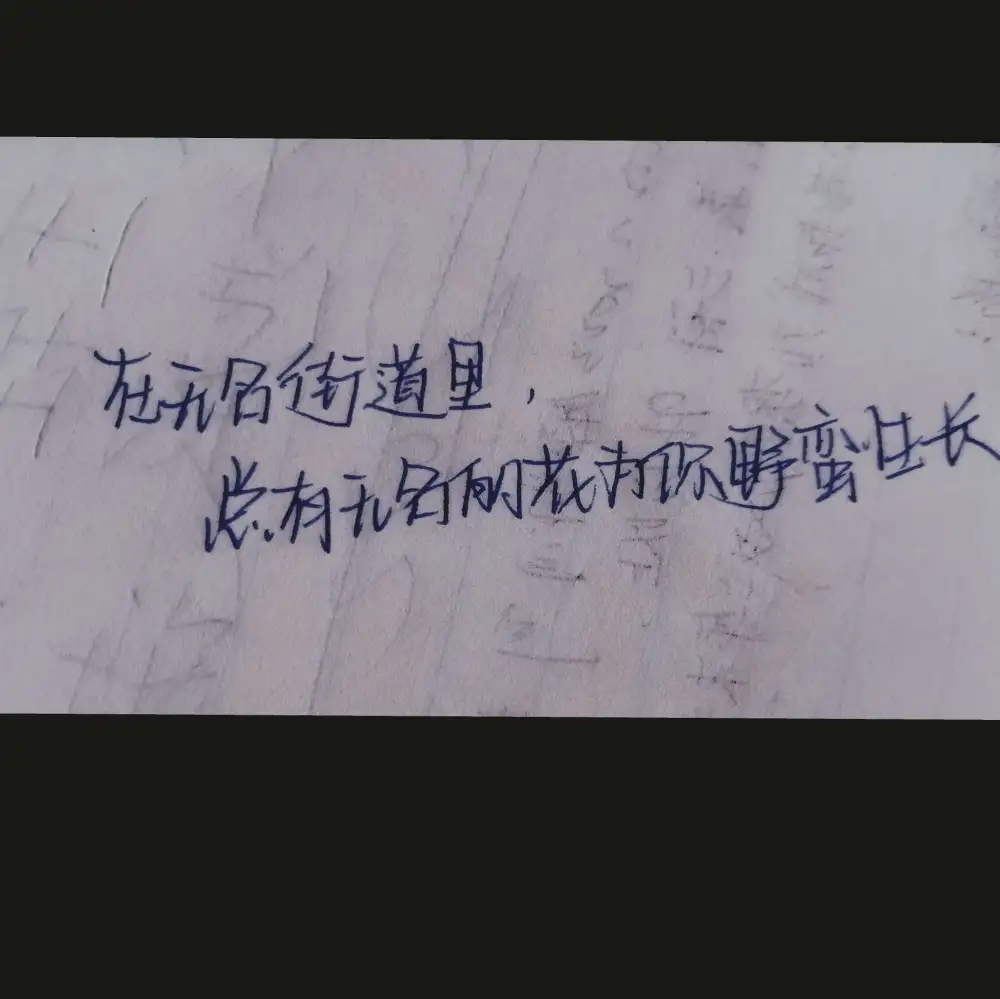 在无名街道里，
总有无名的花为你野蛮生长